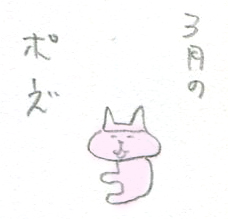 3月の
ポーズ